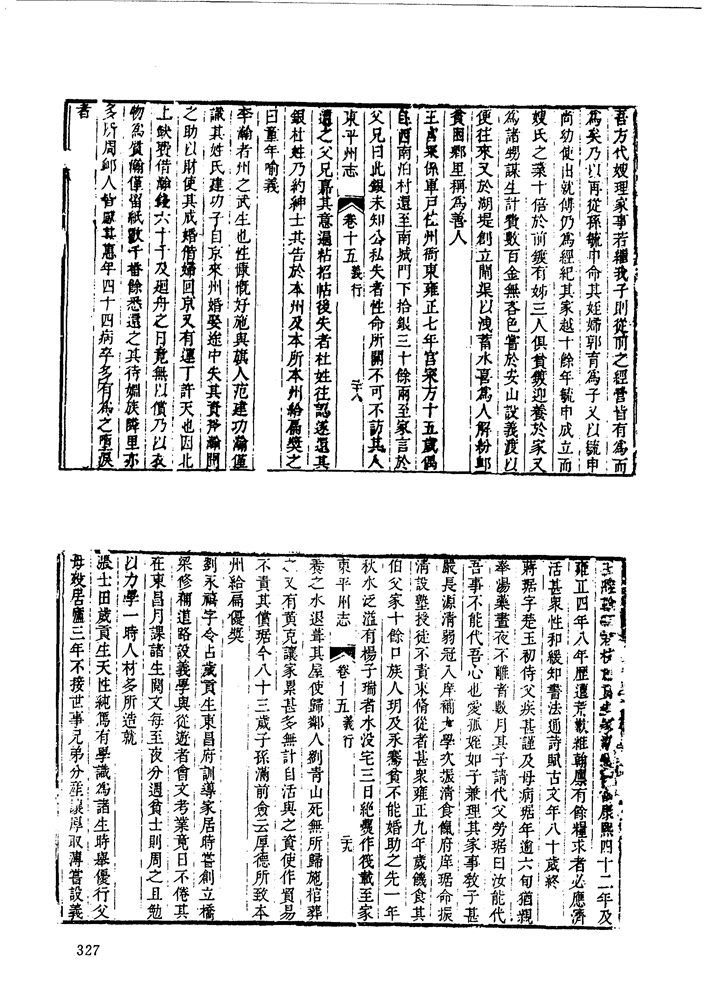 吾方代嫂理家事若繼我子則從前之經營皆有爲而
爲矣乃以再從孫毓申命其姪婦郭育爲子又以毓申
尚幼使出就傅仍爲經紀其家越十餘年毓申成立而
嫂氏之業十倍於前墢有姊三人俱貧墢迎養於家又
爲諸甥謀生計費數百金無吝色嘗於安山設義渡以
便往來又於湖堤創立閘渠以洩蓄水喜爲人解紛鄰
貧困鄉里稱爲善人
王官衆係軍戶住州衙東雍正七年官衆方十五歲偶
自西南泊村還至南城門下拾銀三十餘兩至家言於
父兄曰此銀未知公私失者性命所關不可不訪其人
東平州志 卷十五 義行 二八
還之父兄嘉其意遍粘招帖後失者杜姓往認遂還其
銀杜姓乃約紳士共告於本州及本所本州給扁獎之
曰童年喻義
李瀚者州之武生也性慷慨好施與旗人范建功瀚僅
識其姓氏建功子自京來州婚娶途中失其資斧瀚閗
之助以財使其成婚偕婦回京又有運丁許天也因北
上缺費借瀚錢六十千及廻舟之日竟無以償乃以衣
物爲質瀚僅留紙數千番餘悉還之其待婣族隣里亦
多所周卹人皆感其惠年四十四病卒多有爲之墮淚
者
康熙四十二年及
雍正四年八年歷遭荒歉維翰廪有餘糧求者必應濟
活甚衆性和緩知醫法通詩賦古文年八十歲終
蔣琚字楚玉初侍父疾甚謹及母病琚年逾六旬猶親
奉湯藥晝夜不離者數月其子請代父勞琚曰汝能代
吾事不能代吾心也愛孤姪如子兼理其家事敎子甚
嚴長源清弱冠入庠補大學次振清食餼府庠琚命振
清設塾授徒不責束脩從者甚衆雍正九年歲饑食其
伯父家十餘口族人玥及永騫貧不能婚助之先一年
秋水泛溢有楊子瑞者水没宅三日絶爨作筏載至家
東平州志 卷十五 義行 二九
養之水退葺其屋使歸鄰人劉青山死無所歸施棺葬
之又有黄克讓家累甚多無計自活與之資使作貿易
不責其償琚今八十三歲子孫滿前僉云厚德所致本
州給扁優獎
劉永禧字令占歲貢生東昌府訓導家居時嘗創立橋
梁修補道路設義學與從遊者會文考業竟日不倦其
在東昌月課諸生閱文每至夜分遇貧士則周之且勉
以力學一時人材多所造就
張士田歲貢生天性純篤有學識爲諸生時舉優行父
母歿居廬三年不接世事兄弟分產讓厚取薄嘗設義
327